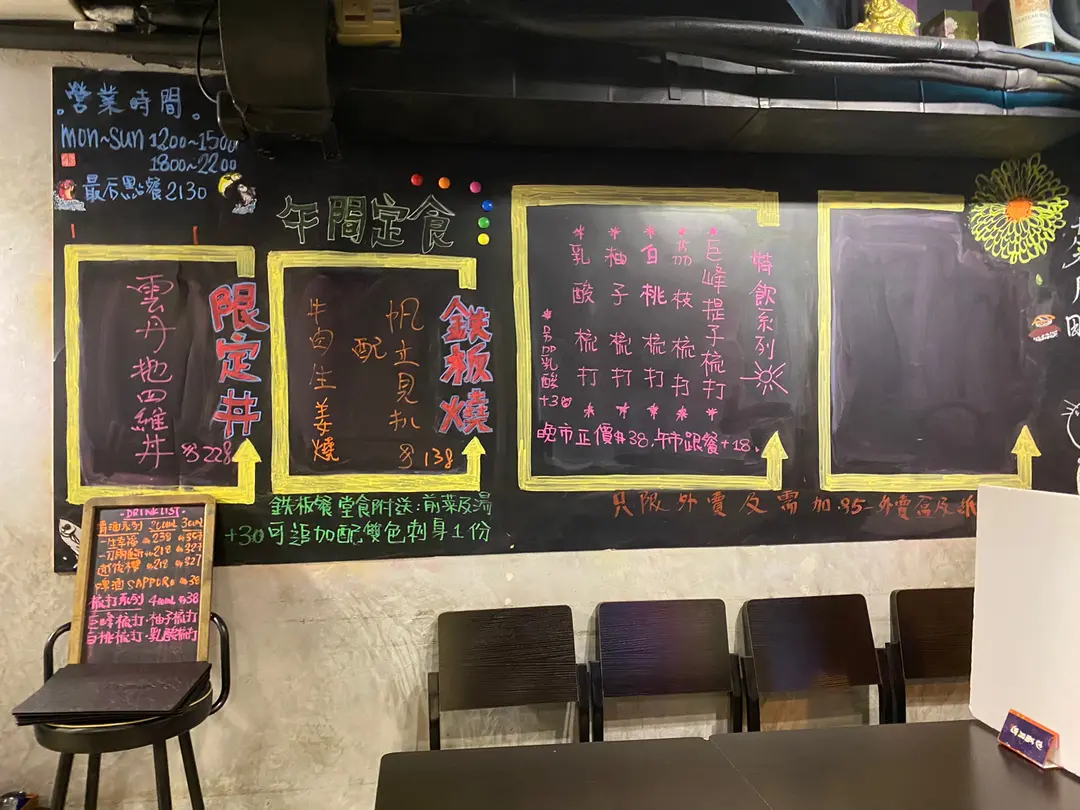 營業時間
mon~sun 1200~1500
1800~2200
最后點餐 2130
午間定食
限定丼
雲丹地四維丼 $228
鉄板燒
帆立貝扒
配
牛肉生姜燒
$138
特飲系列
巨峰提子梳打
荔枝梳打
白桃梳打
柚子梳打
乳酸梳打
*另加乳酸+3
晚市正價$38,午市跟餐+18.
鉄板餐堂食附送:前菜及湯
+30可追加配雙色刺身1份
只限外賣及需加.$5-外賣盒及
-DRINK LIST-
啤酒 SAPPORO $38
梳打系列 400ml $38
巨峰梳打·柚子梳打
白桃梳打·乳酸梳打